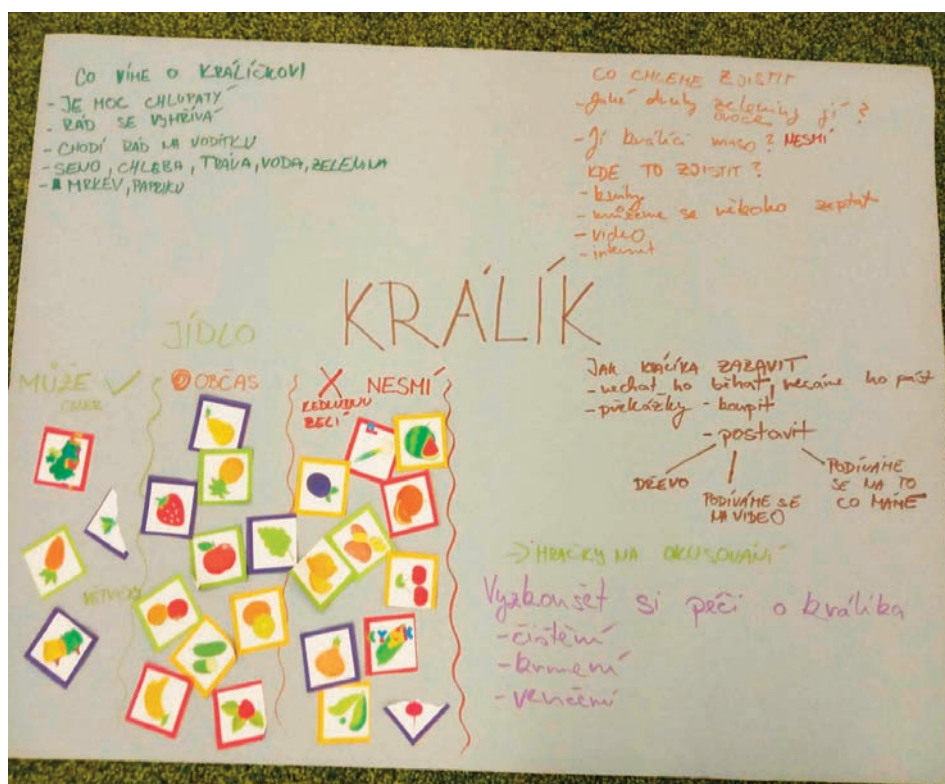 CO VÍME O KRÁLÍČKOVI
- JE MOC CHLUPATÝ
- RÁD SE VYHŘÍVÁ
- CHODÍ RÁD NA VODÍTKU
- SENO, CHLEBA, TRÁVA, VODA, ZELENINA
- MRKEV, PAPRIKU
CO CHCEME ZJISTIT
- Jaké druhy zeleniny jí?
ovoce
- Jí králíci maso? NESMÍ
KDE TO ZJISTIT?
- knihy
- můžeme se někoho zeptat
- video
- internet
KRÁLÍK
JÍDLO
MŮŽE
OBČAS
X NESMÍ
KEDLUBNU
ZELÍ
VĚTVIČKY
JAK KRÁLÍKA ZABAVIT
- nechat ho běhat, necháme ho pást
- překážky - koupit
- postavit
DŘEVO
PODÍVÁME SE
NA VIDEO
PODÍVÁME
SE NA TO
CO MÁME
→ HRAČKY NA OKUSOVÁNÍ
Vyzkoušet si péči o králíka
- čištění
- krmení
- venčení